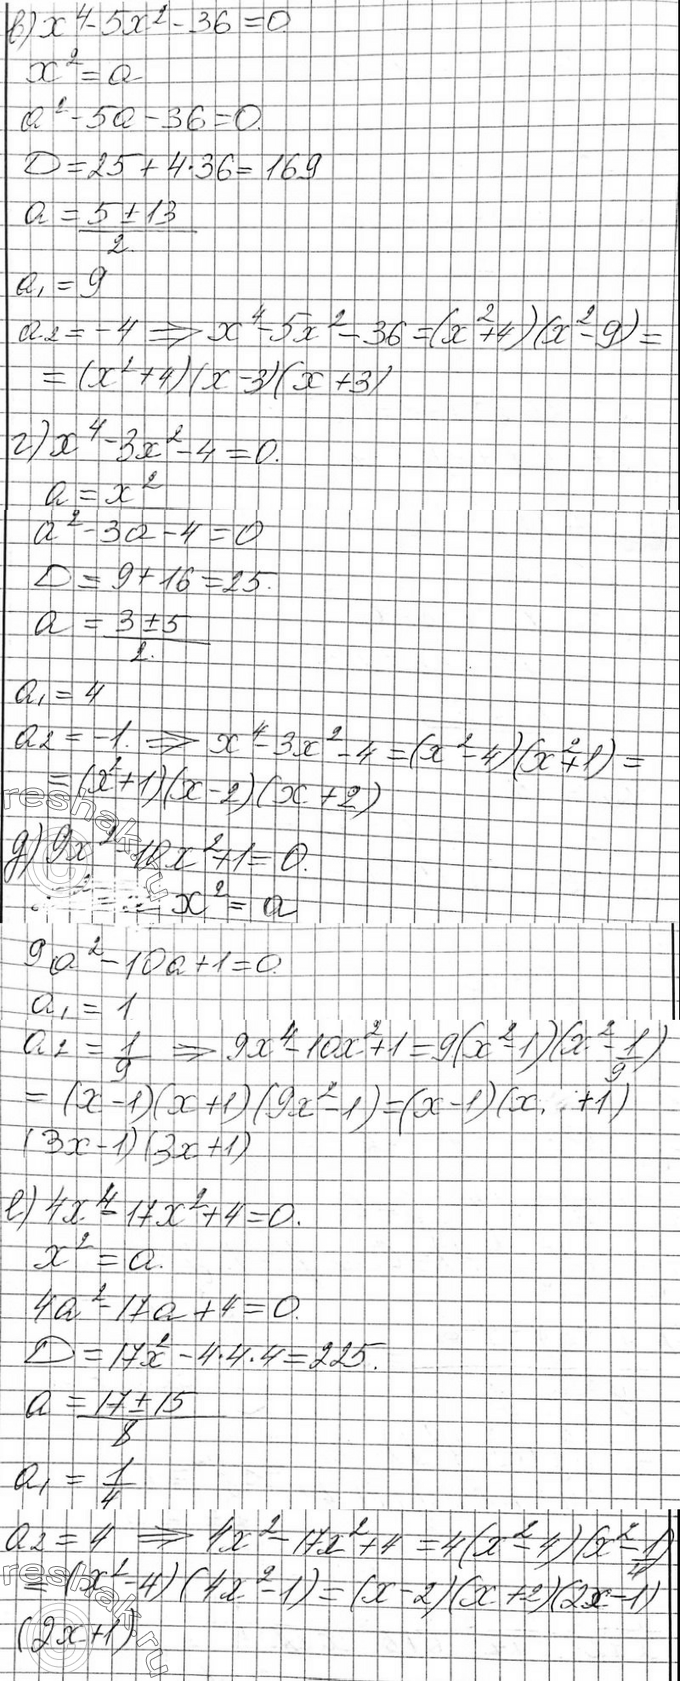 в) x⁴ - 5x² - 36 = 0
x² = a
a² - 5a - 36 = 0.
D = 25 + 4·36 = 169
a = (5 ± 13)/2.
a₁ = 9
a₂ = -4 ⇒ x⁴ - 5x² - 36 = (x² + 4)(x² - 9) =
= (x² + 4)(x - 3)(x + 3)
г) x⁴ - 3x² - 4 = 0.
a = x²
a² - 3a - 4 = 0
D = 9 + 16 = 25.
a = (3 ± 5)/2.
a₁ = 4
a₂ = -1. ⇒ x⁴ - 3x² - 4 = (x² - 4)(x² + 1) =
= (x² + 1)(x - 2)(x + 2)
reshak.ru
д) 9x² - 10x² + 1 = 0.
x² = a
9a² - 10a + 1 = 0
a₁ = 1
a₂ = 1/9 ⇒ 9x⁴ - 10x² + 1 = 9(x² - 1)(x² - 1/9)
= (x - 1)(x + 1)(9x² - 1) = (x - 1)(x + 1)
(3x - 1)(3x + 1)
е) 4x⁴ - 17x² + 4 = 0.
x² = a.
4a² - 17a + 4 = 0.
D = 17x² - 4·4·4 = 225.
a = (17 ± 15)/8
a₁ = 1/4
a₂ = 4 ⇒ 4x² - 17x² + 4 = 4(x² - 4)(x² - 1/4)
= (x² - 4)(4x² - 1) = (x - 2)(x + 2)(2x - 1)
(2x + 1)
reshak.ru